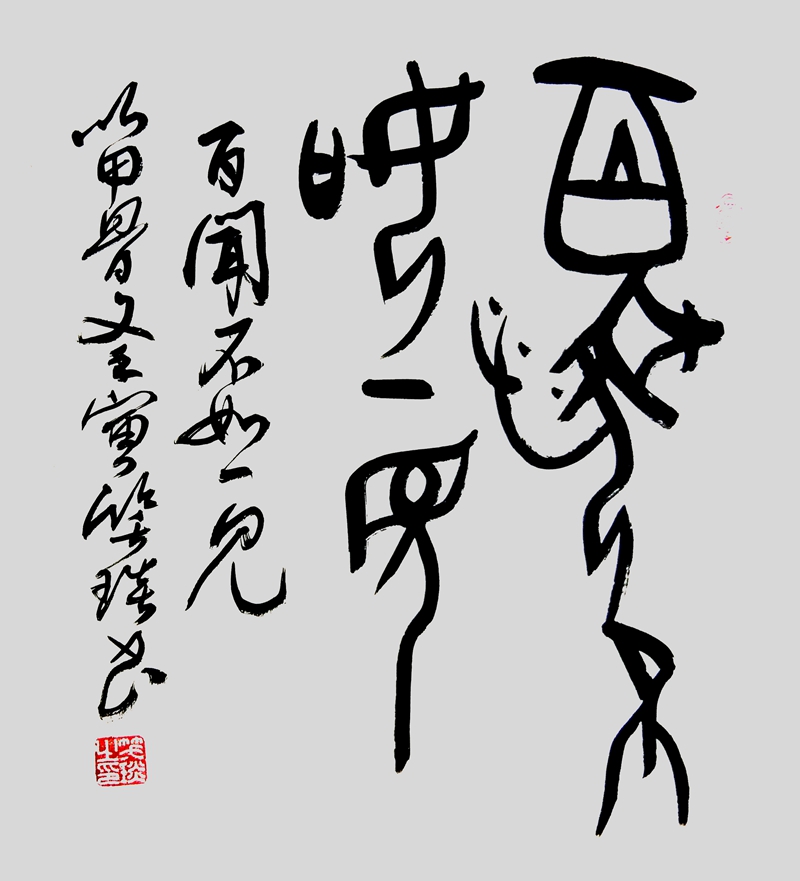 百聞不
如一見
百聞不如一見
以甲骨文壬寅書